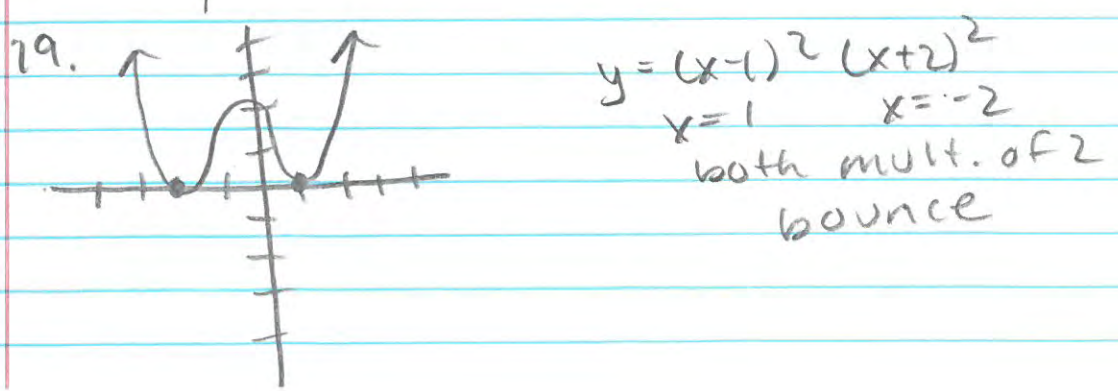 19.
y = (x-1)² (x+2)²
x=1 x=-2
both mult. of 2
bounce